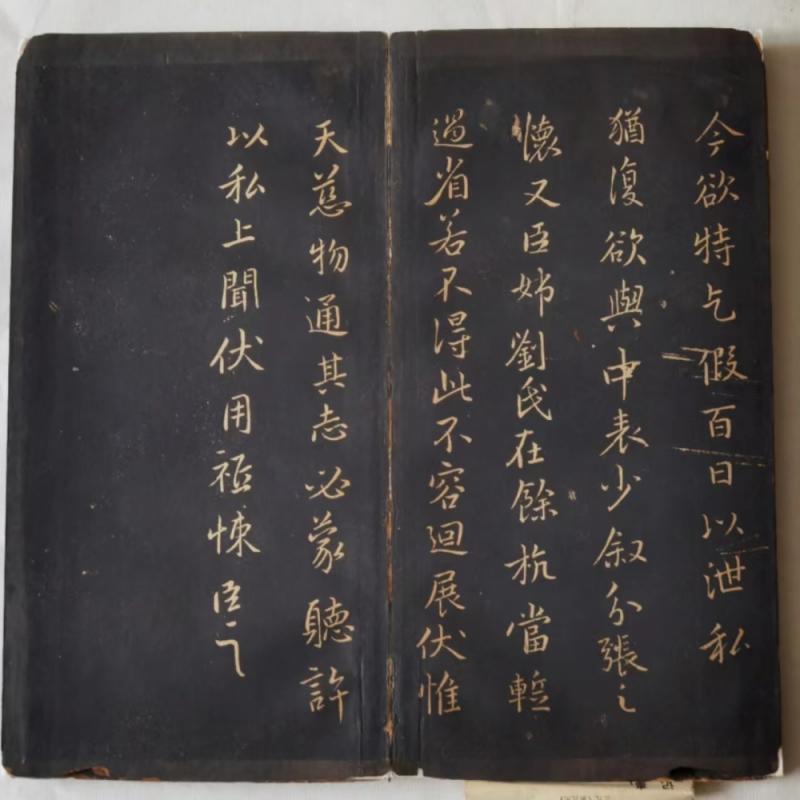 今欲特乞假百日以泄私
猶復欲與中表少叙分張之
懷又臣姊劉氏在餘杭當暫
過省若不得此不容迴展伏惟
天慈物通其志必蒙聽許
以私上聞伏用祗悚臣